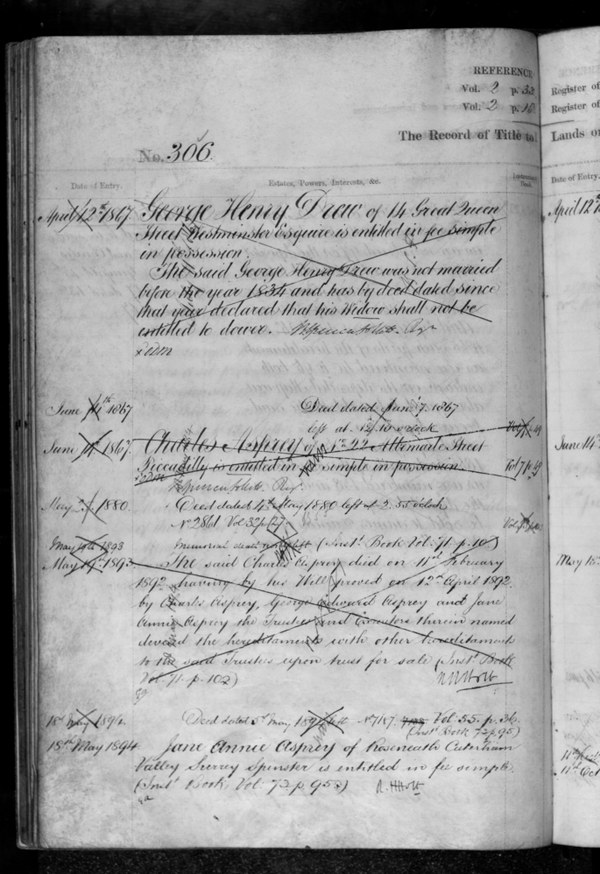 REFERENCE
Vol. 2 p. 32
Register of
Vol. 2 p.
Register of
The Record of Title to
Lands or
No. 306.
Date of Entry.
Estates, Powers, Interests, &c.
Date of Entry.
April 12th 1867
George Henry Drew of 14 Great Queen
April 12
Street Westminster Esquire is entitled in fee simple
in possession.
The said George Henry Drew was not married
before the year 1834 and has by deed dated since
that year declared that his Widow shall not be
entitled to dower.
June 14th 1867
Deed dated June 7. 1867
left at 12 o'clock
June 14th 1867.
Charles Asprey of 22 Albemarle Street
June 14
Piccadilly is entitled in fee simple in possession.
Vol 7 p. 49
May 1880
Deed dated 4th May 1880 left at 2.55 o'clock
No 2861 Vol 32 p.
May 1893
(Inst. Book Vol. 71. p. 10 )
May 19th 1893
The said Charles Asprey died on 11th February
May 1
1892 having by his Will proved on 12th April 1892
by Charles Asprey, George Edward Asprey and Jane
Annie Asprey the Trustees and Executors therein named
devised the hereditaments with other hereditaments
to the said Trustees upon trust for sale (Inst. Book
Vol. 71. p. 102)
18th May 1894.
Deed dated 5th May 1894 Vol. 55. p. 36
(Inst. Book 72 p. 95)
18th May 1894
Jane Annie Asprey of Roseneath Caterham
Valley Surrey Spinster is entitled in fee simple.
11th Oct
(Inst. Book Vol. 72 p. 95)